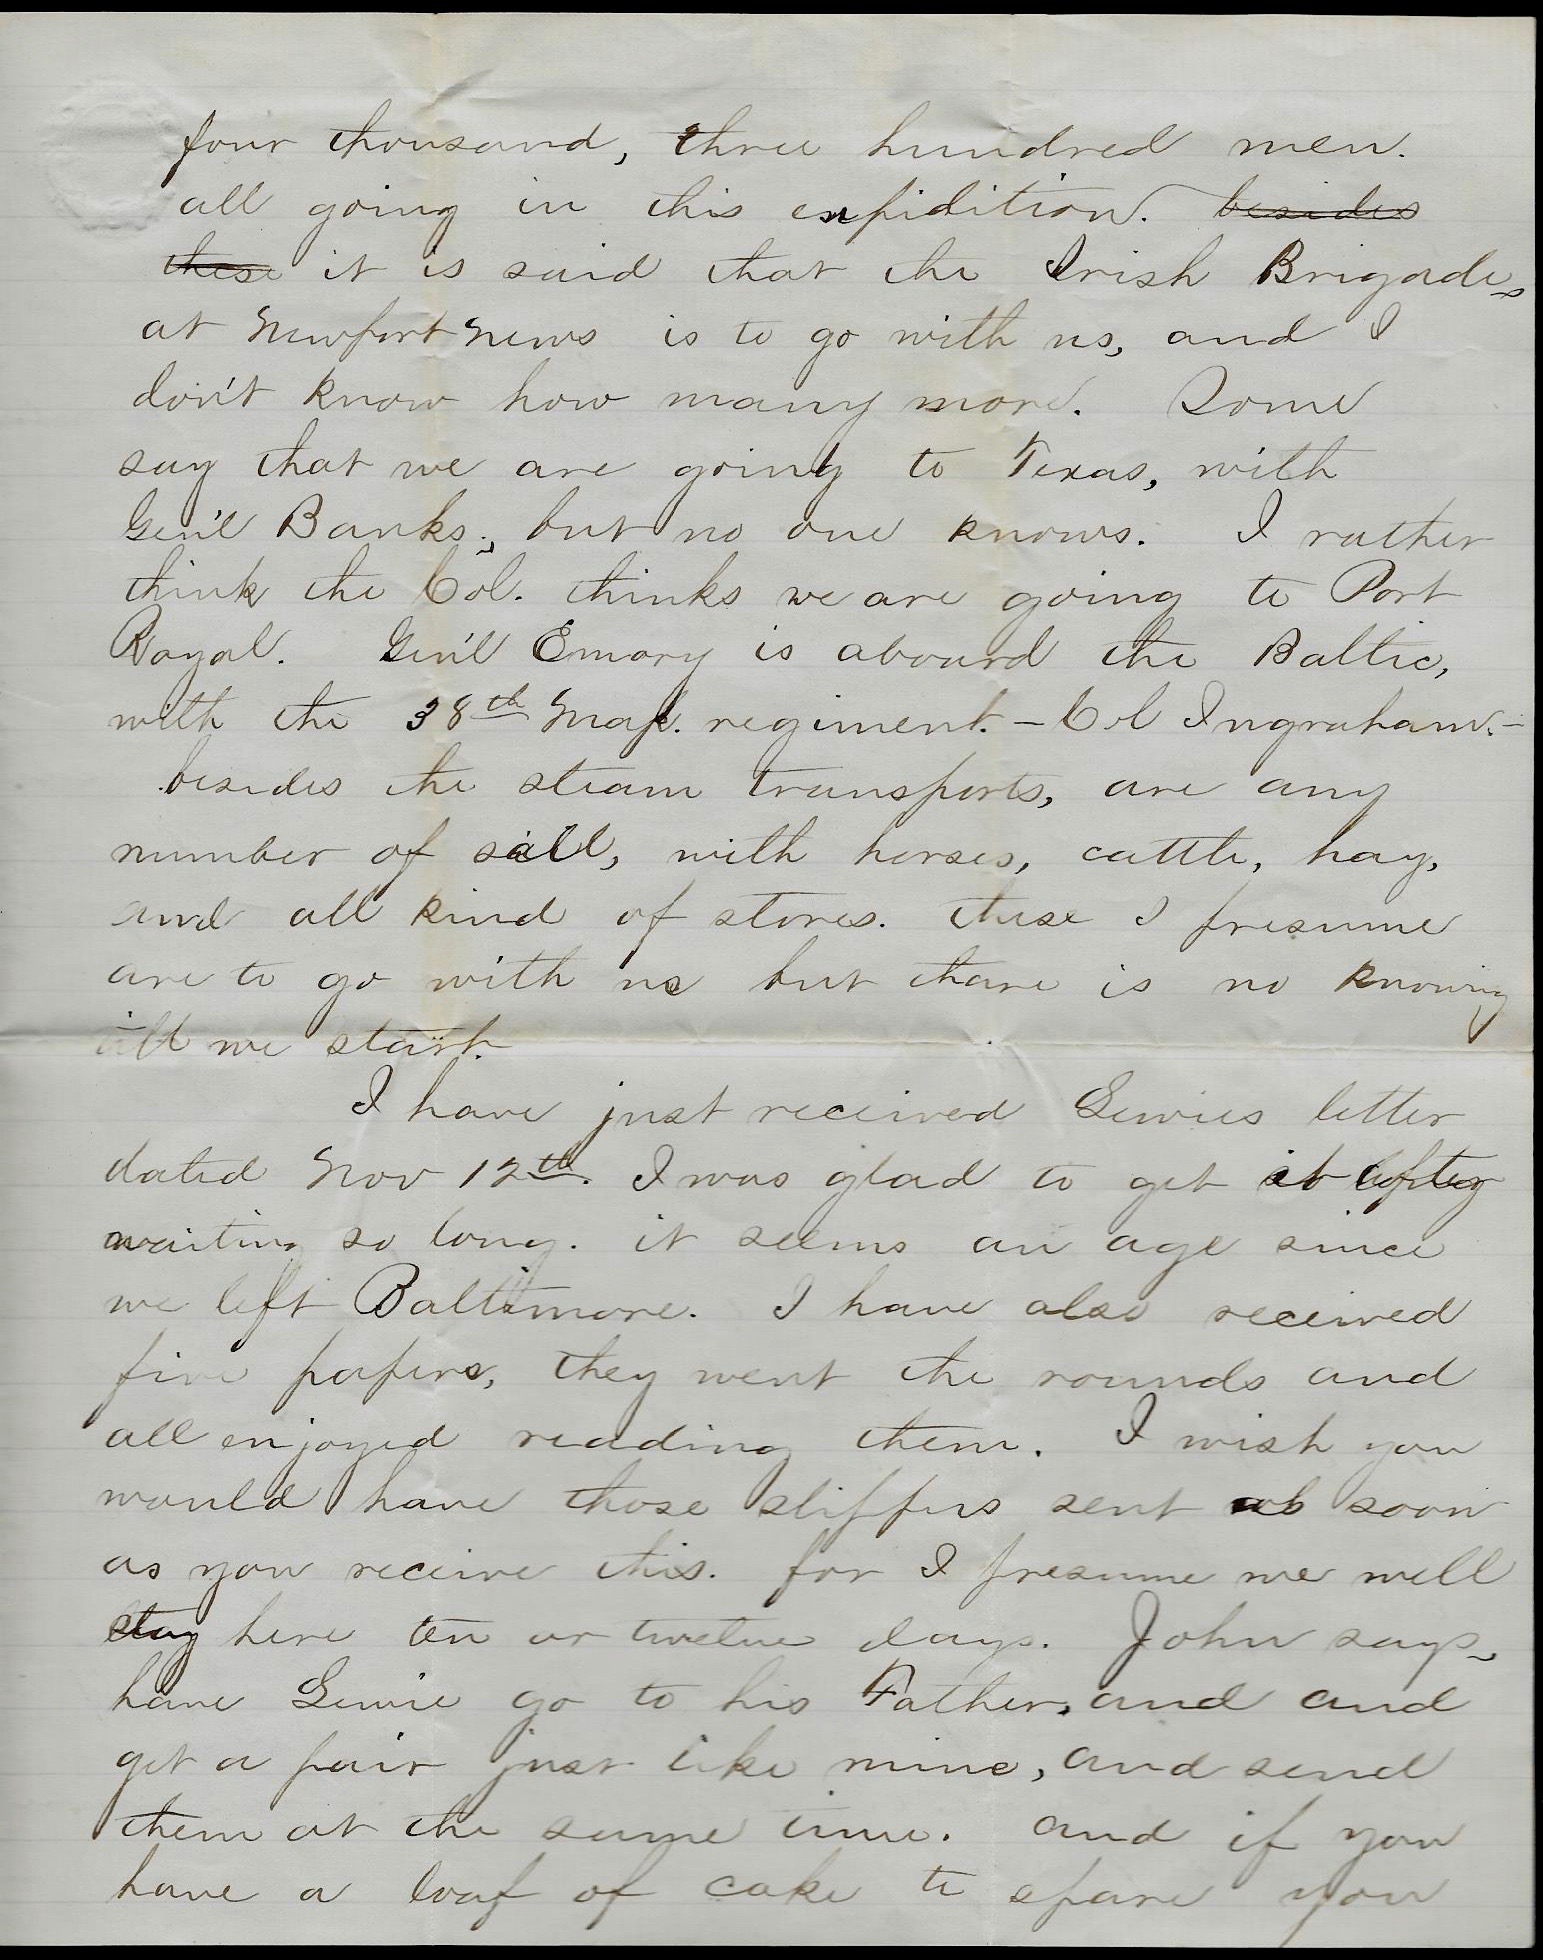 four thousand, three hundred men.
all going in this expidition. besides
these it is said that the Irish Brigade,
at Newport News is to go with us, and I
don't know how many more. Some
say that we are going to Texas, with
Gen'l Banks, but no one knows. I rather
think the Col. thinks we are going to Port
Royal. Gen'l Emory is abourd the Baltic,
with the 38th Mass. regiment. - Col Ingraham. -
besides the steam transports, are any
number of sail, with horses, cattle, hay,
and all kind of stores. these I presume
are to go with us but thare is no knowing
till we start.
I have just received Gewies letter
dated Nov 12th. I was glad to get it after
waiting so long. it seems an age since
we left Baltimore. I have also received
five papers, they went the rounds and
all enjoyed reading them. I wish you
would have those slippers sent as soon
as you receive this. for I presume we will
stay here ten or twelve days. John says,
have Gewie go to his Father, and and
get a pair just like mine, and send
them at the same time. and if you
have a loaf of cake to spare you